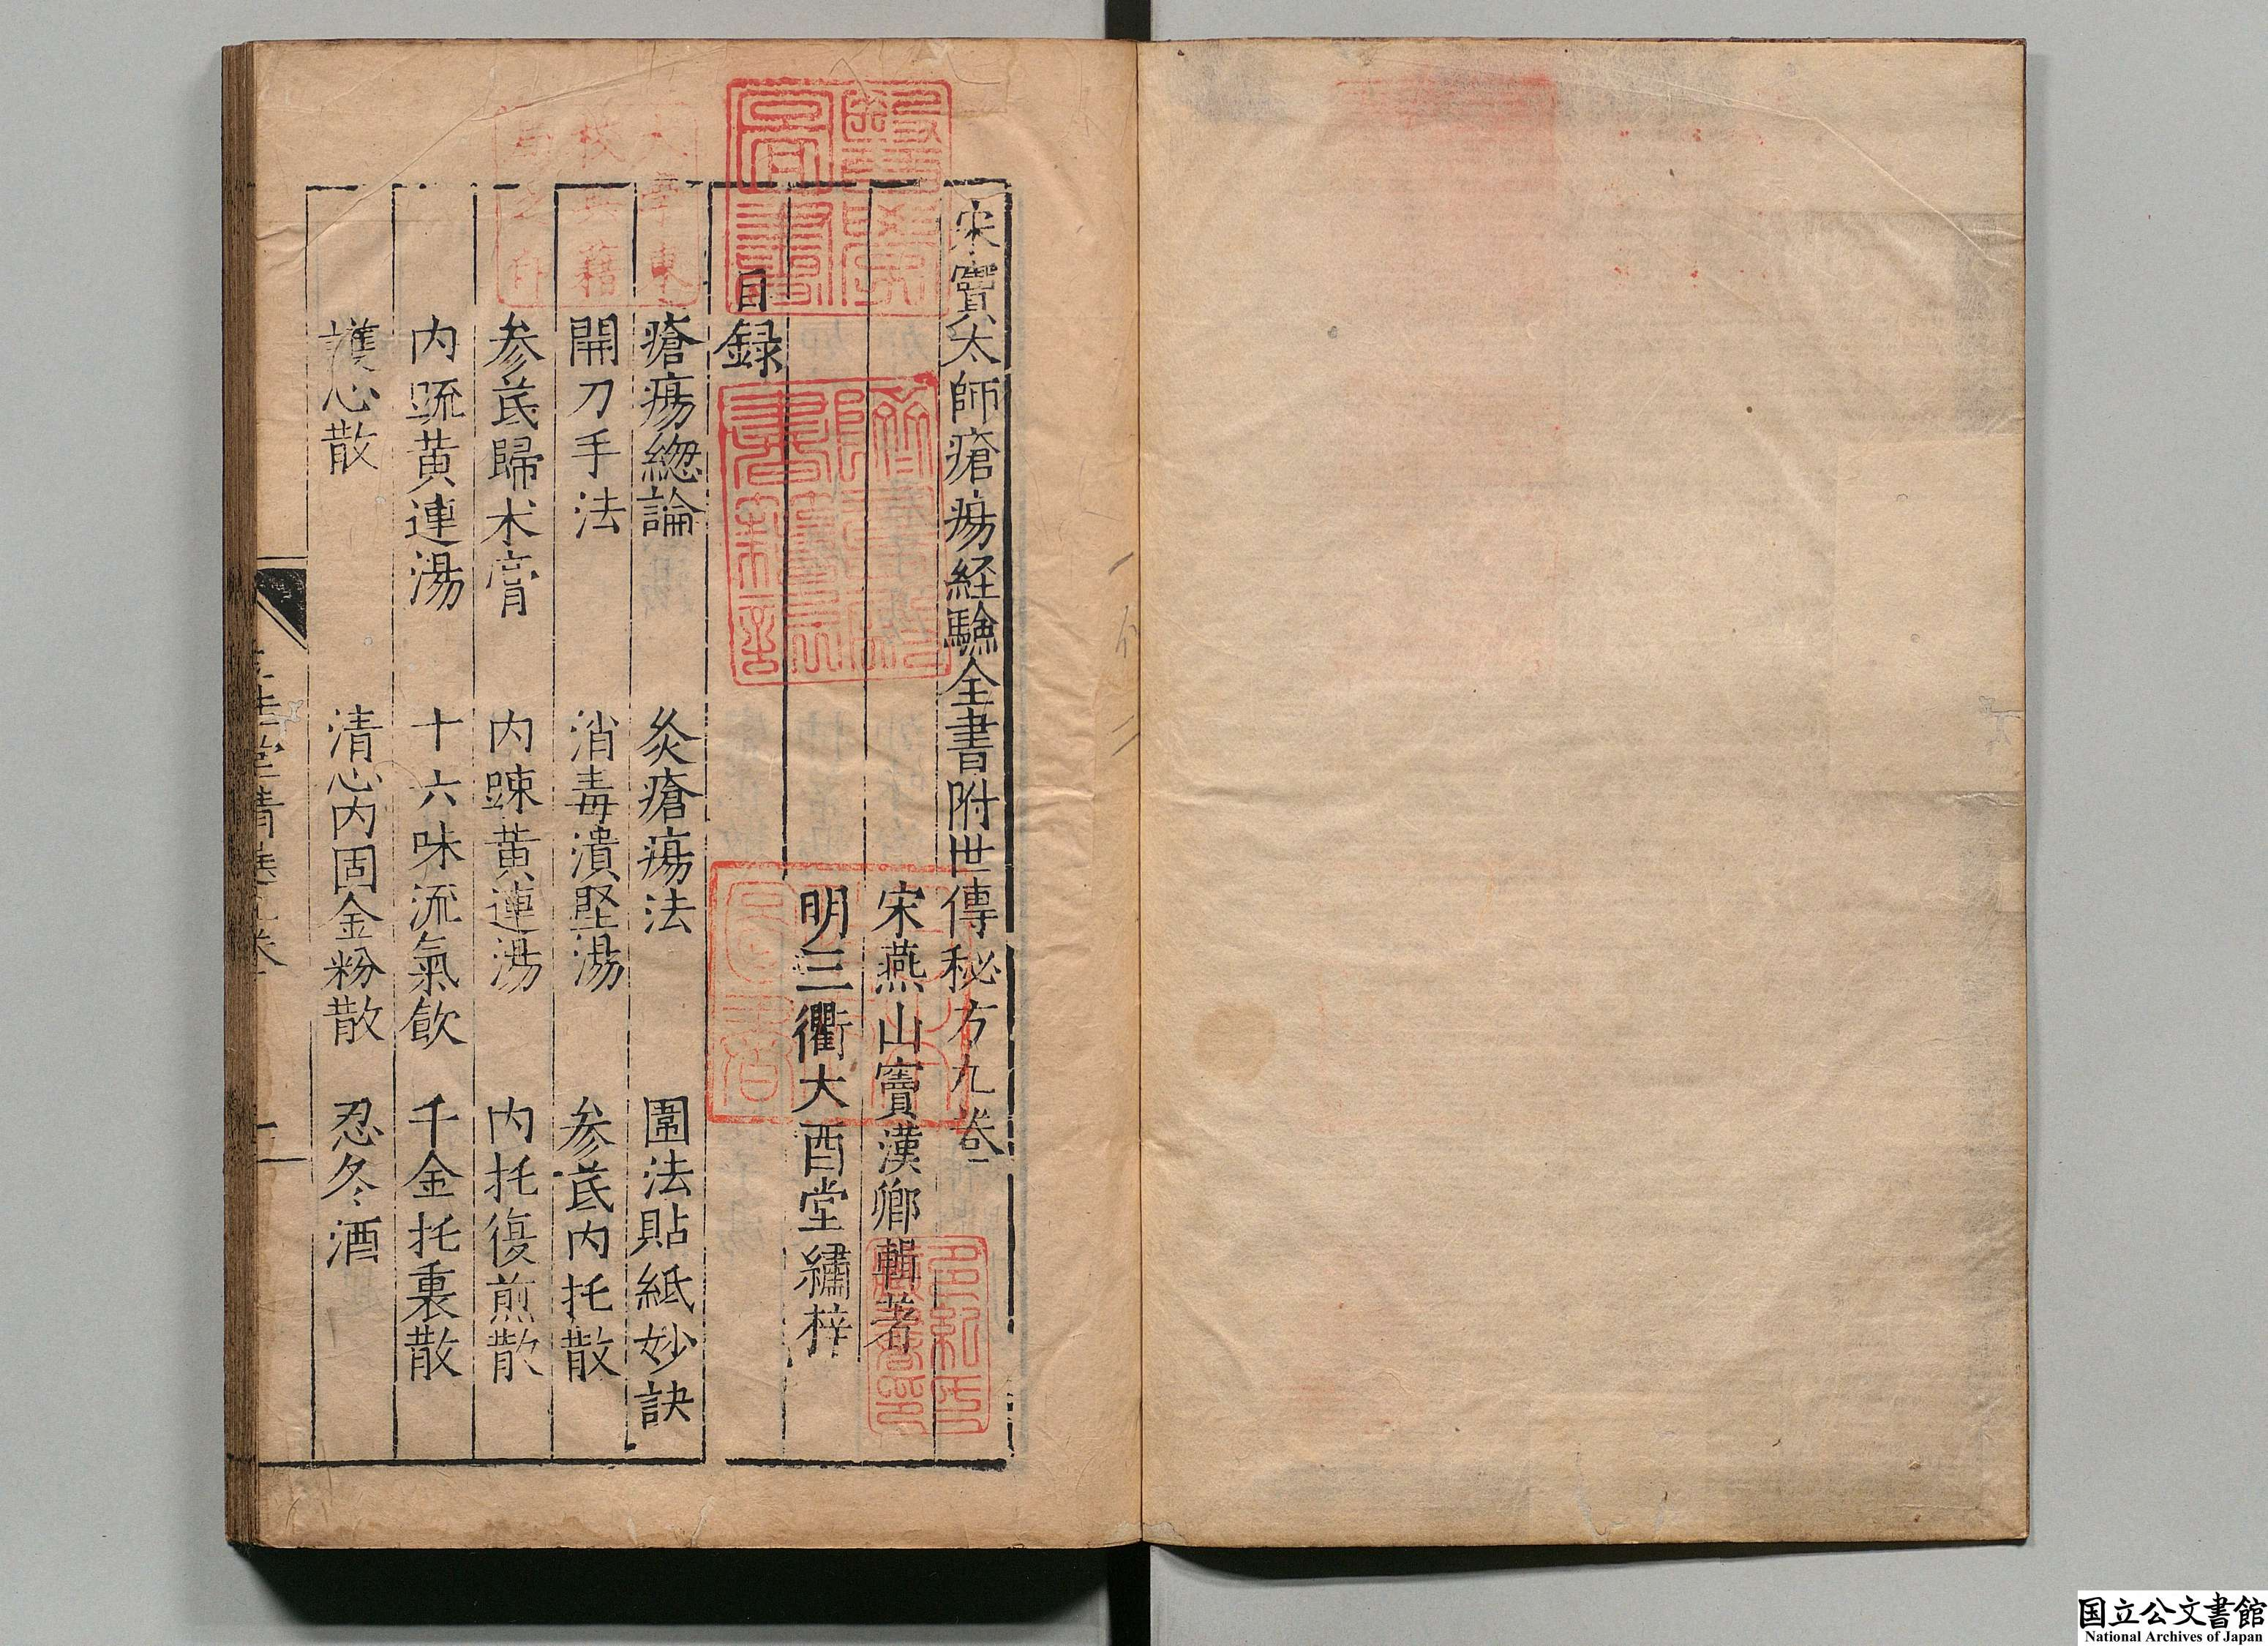 宋竇太師瘡瘍経驗全書附世傳秘方九卷
宋燕山竇漢卿輯著
明三衢大酉堂繡梓
目録
瘡瘍緫論 灸瘡瘍法 圍法貼紙妙訣
開刀手法 消毒潰堅湯 参芪内托散
参芪歸术膏 内踈黄連湯 内托復煎散
内䟽黄連湯 十六味流氣飲 千金托裏散
護心散 清心内固金粉散 忍冬酒
国立公文書館
National Archives of Japan